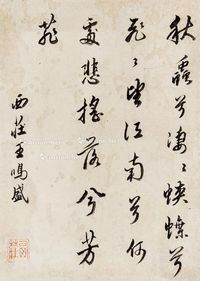 秋露兮凄〻蛱蝶兮
飛〻望江南兮何
處悲搖落兮芳
菲
西莊王鳴盛